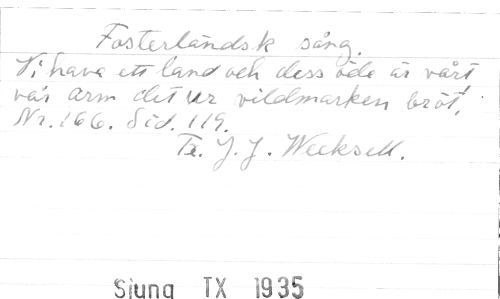 Fosterländsk sång.
Vi hava ett land och dess öde är vårt
vår arm det ur vildmarken bröt.
Nr. 166. Sid. 119.
Tr. J. J. Wecksell.
Sjung TX 1935